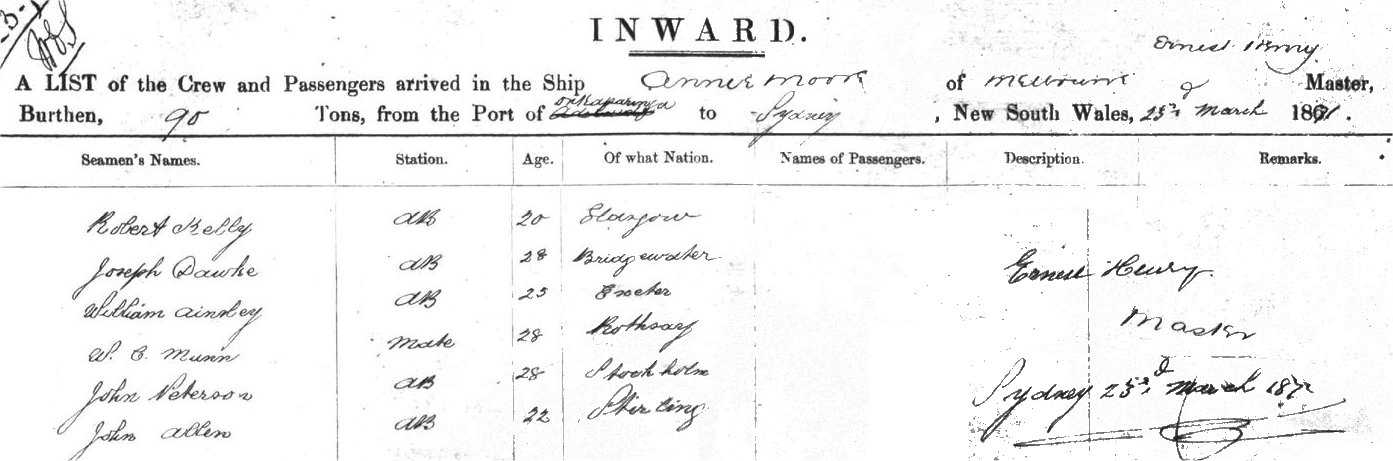 INWARD.
Ernest Henry
A LIST of the Crew and Passengers arrived in the Ship Annie Moore of Melbourne Master,
Burthen, 90 Tons, from the Port of Onkaparinga to Sydney, New South Wales, 23d March 1871.
Seamen's Names. Station. Age. Of what Nation. Names of Passengers. Description. Remarks.
Robert Kelly AB 20 Glasgow
Joseph Dawke AB 28 Bridgewater
Ernest Henry
William Ainsley AB 25 Exeter
Master
W. C. Munn Mate 28 Rothsay
John Peterson AB 28 Stockholm
Sydney 23rd March 1871
John Allen AB 22 Stirling